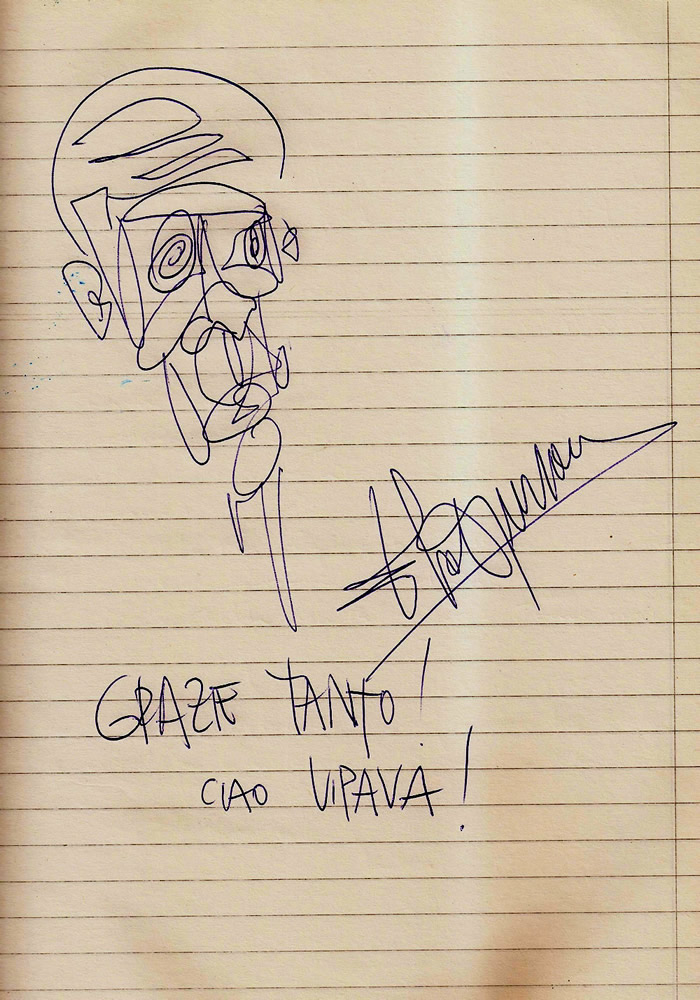 GRAZIE TANTO!
CIAO VIPAVA!